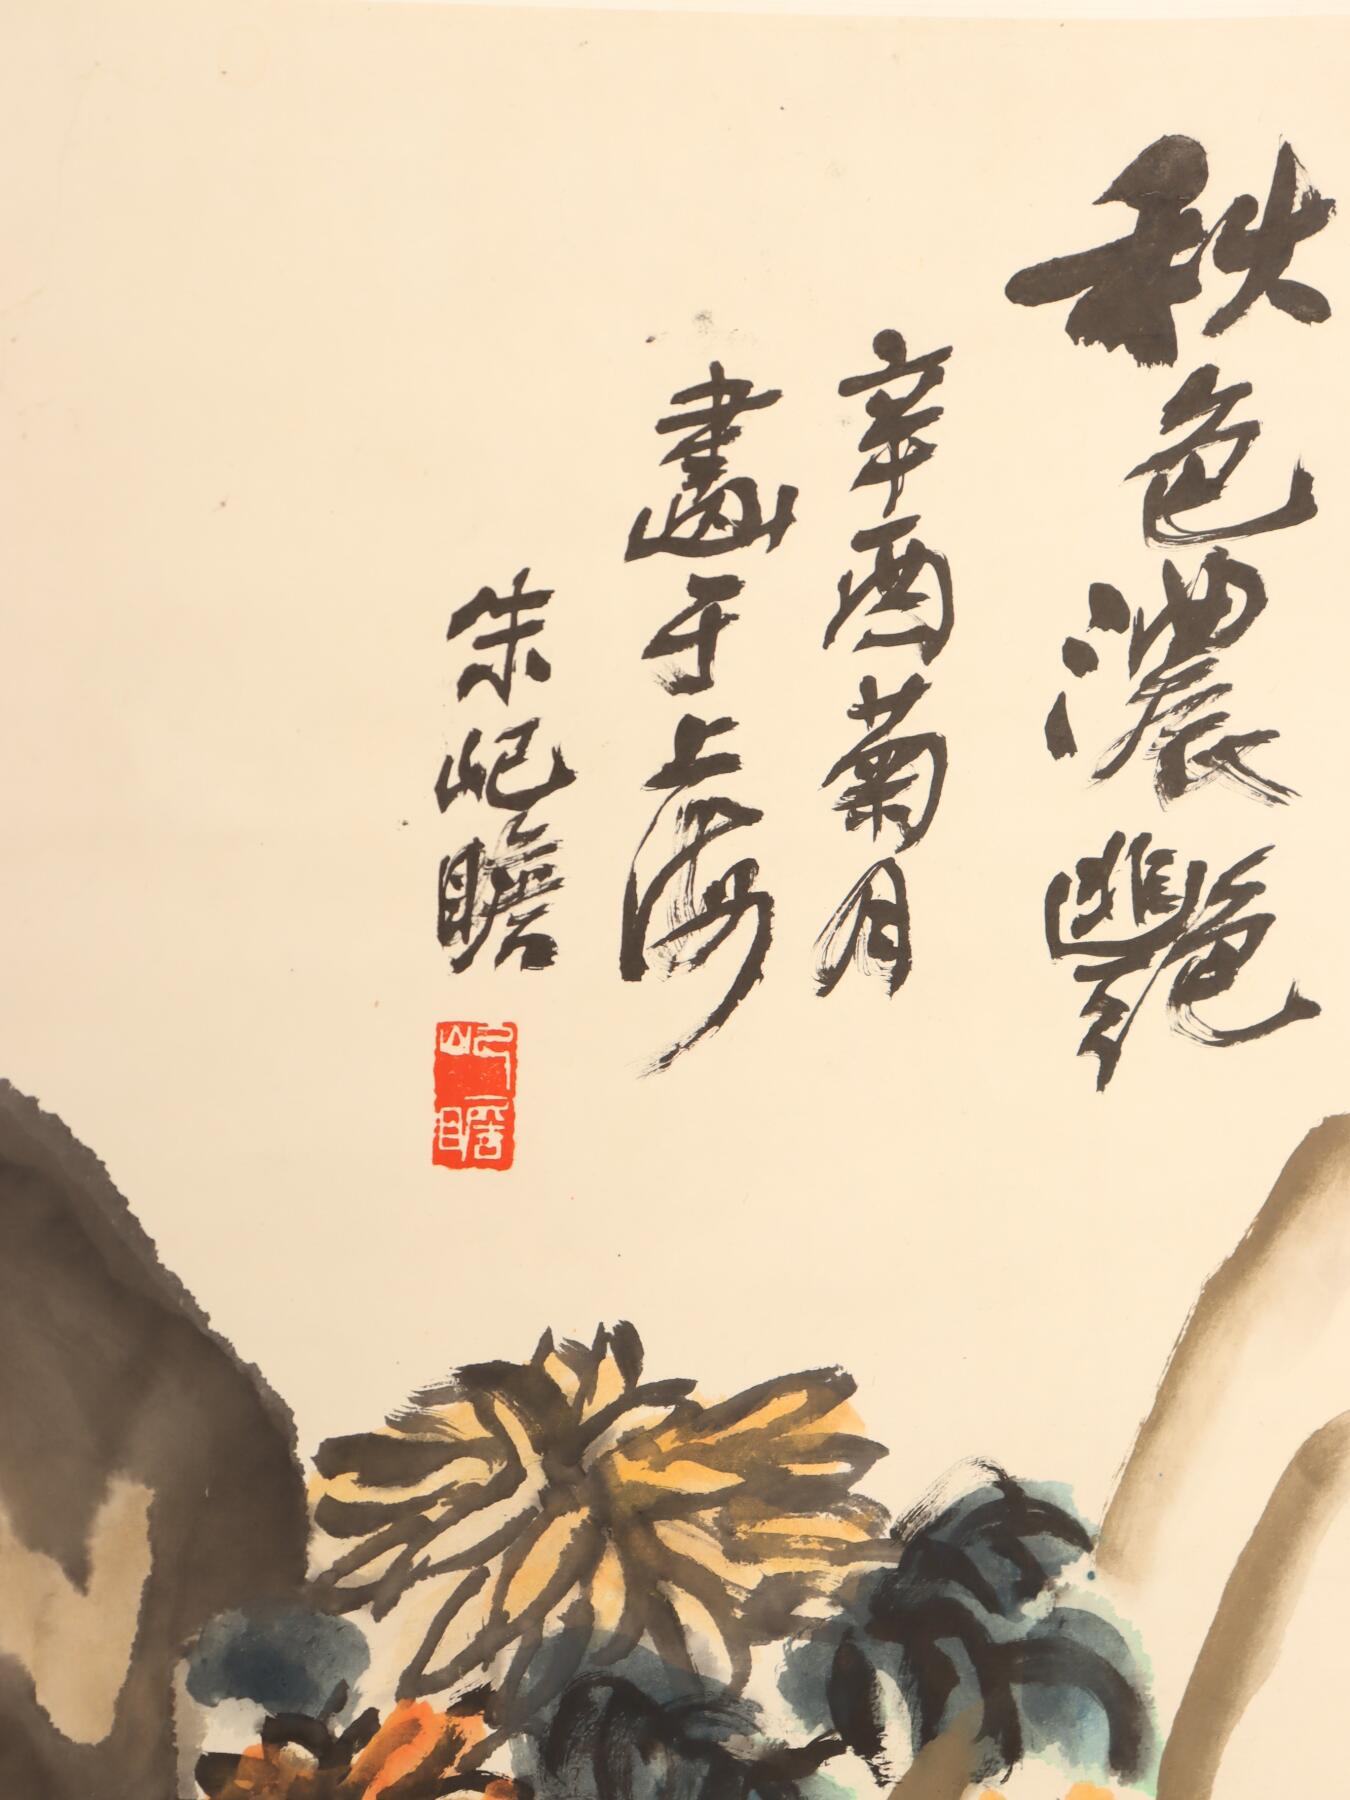 秋色濃豔
辛酉菊月
畫于上海
朱屺瞻
屺瞻